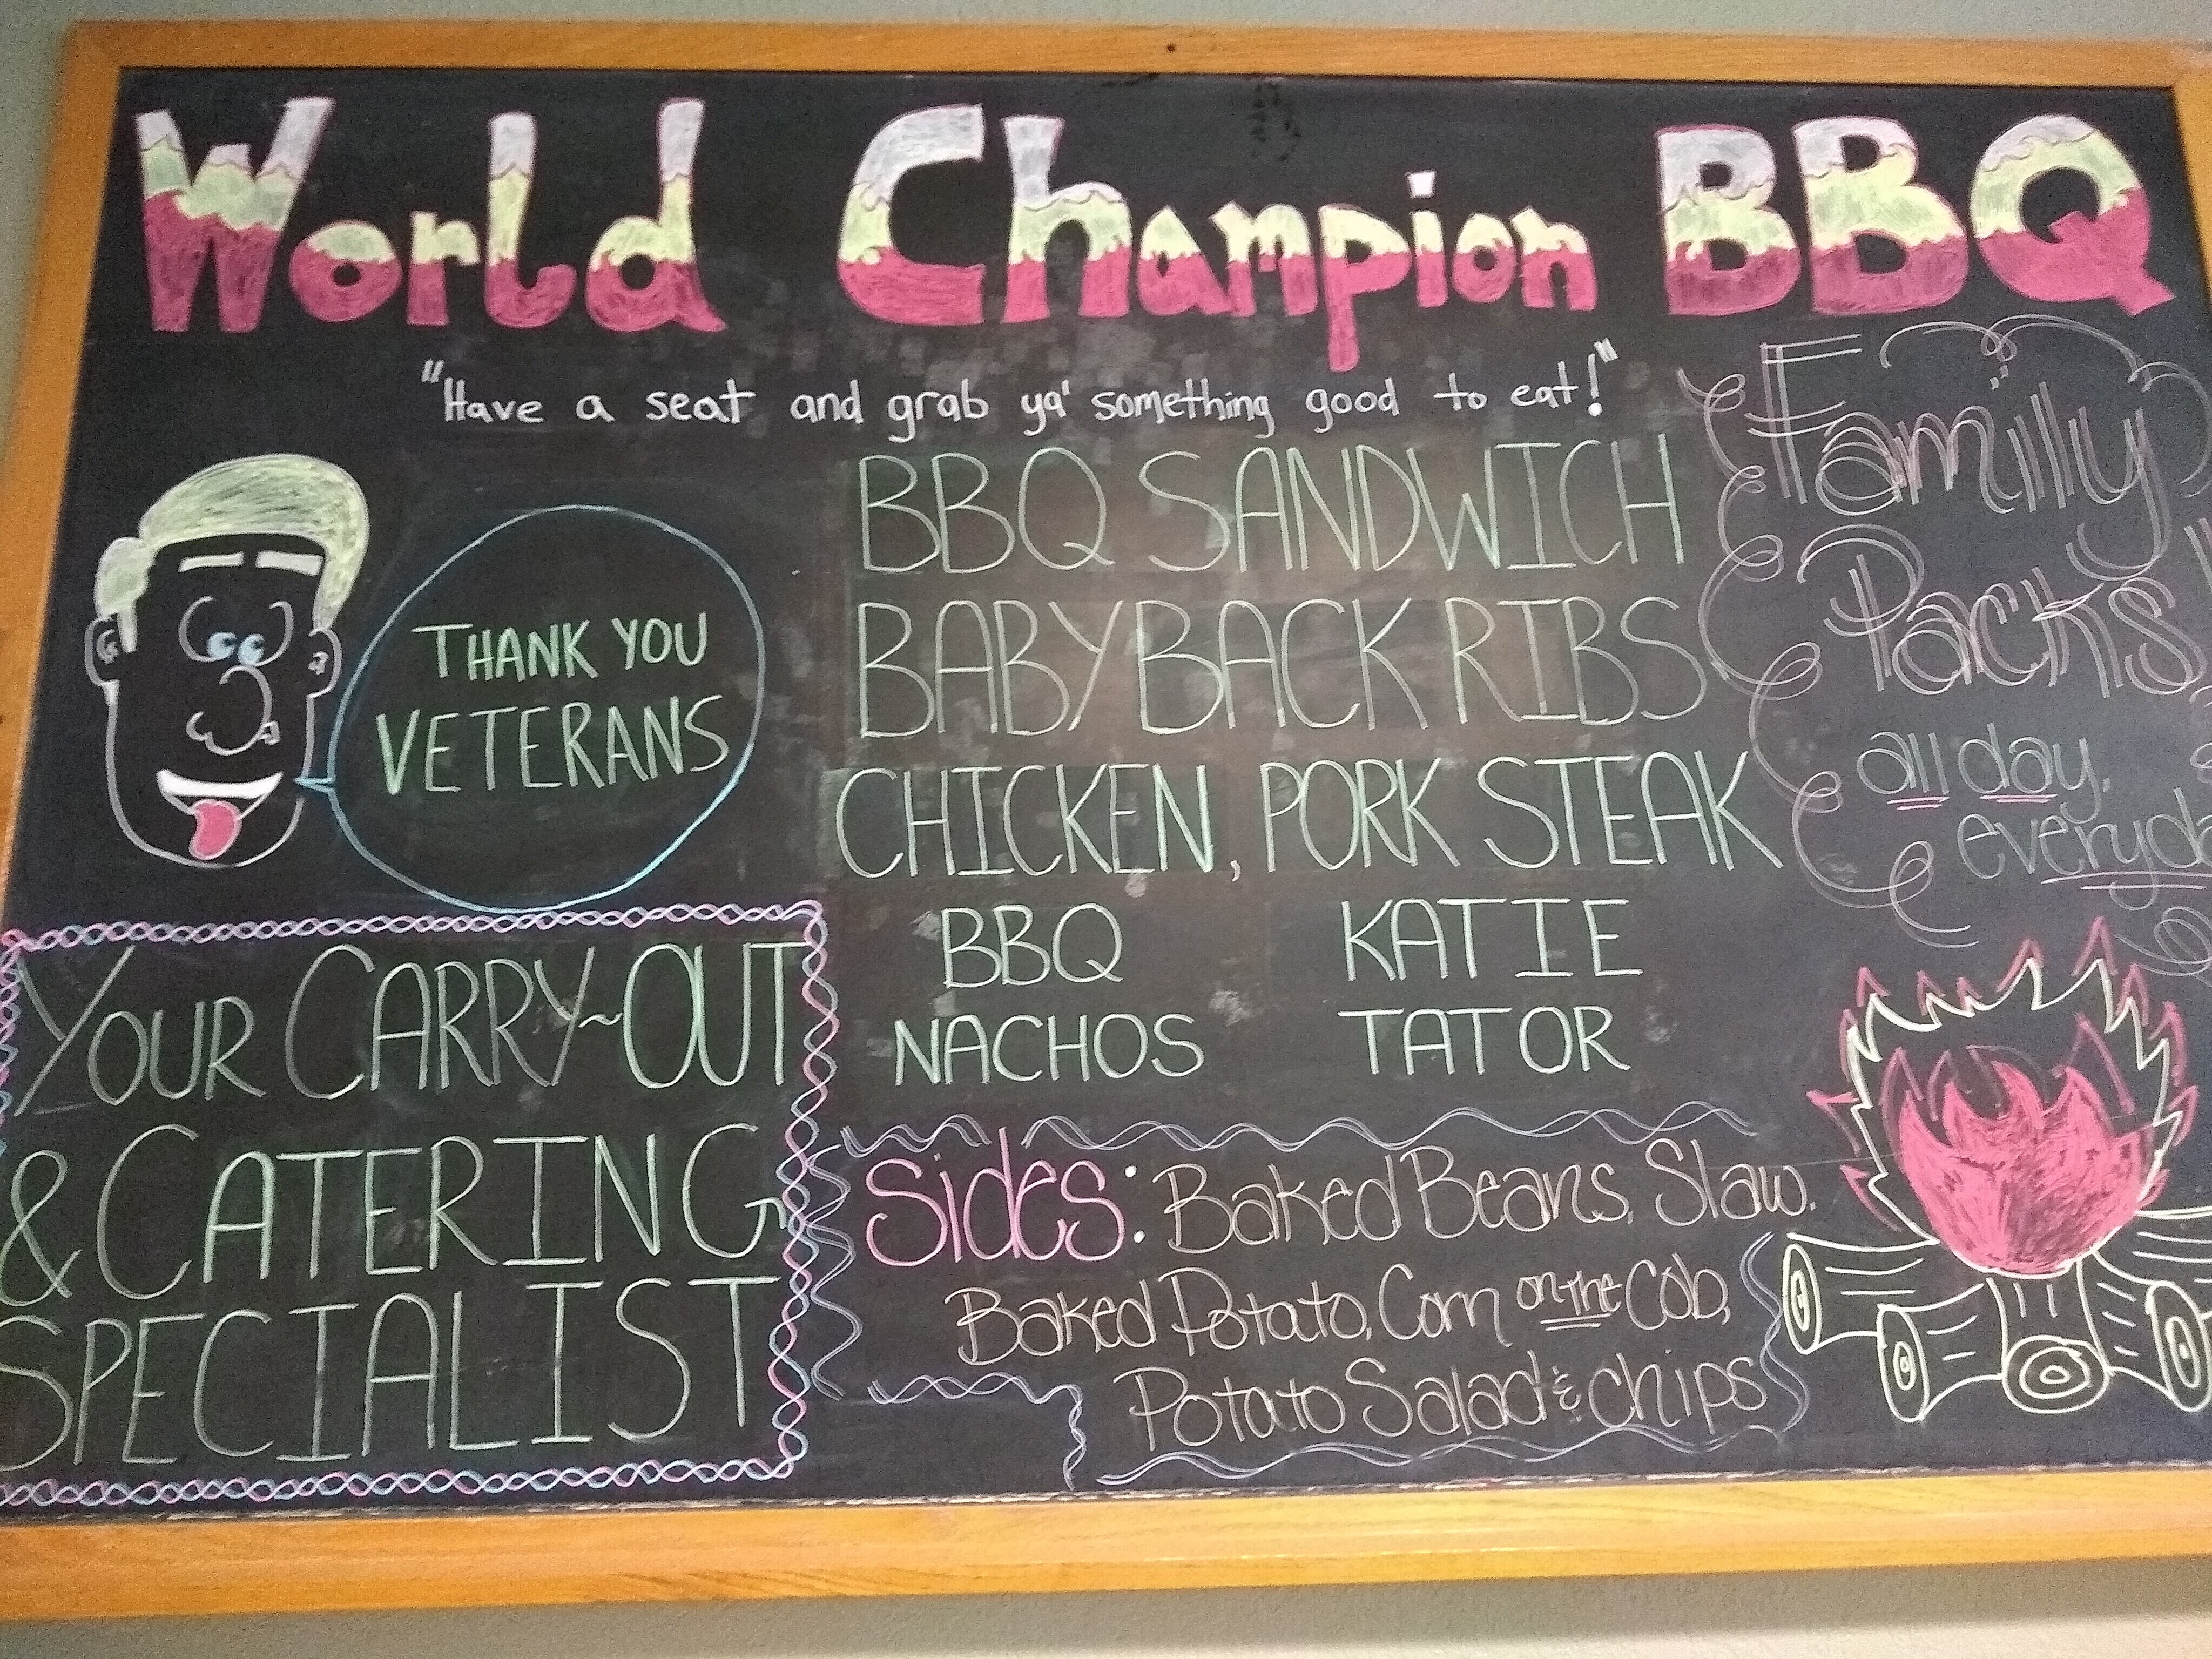 World Champion BBQ
"Have a seat and grab ya' something good to eat!"
THANK YOU
VETERANS
BBQ SANDWICH
BABY BACK RIBS
CHICKEN, PORK STEAK
BBQ
NACHOS
KATIE
TATOR
Family
Packs
all day,
YOUR CARRY~OUT
& CATERING
SPECIALIST
Sides: Baked Beans, Slaw,
Baked Potato, Corn on the Cob,
Potato Salad & chips